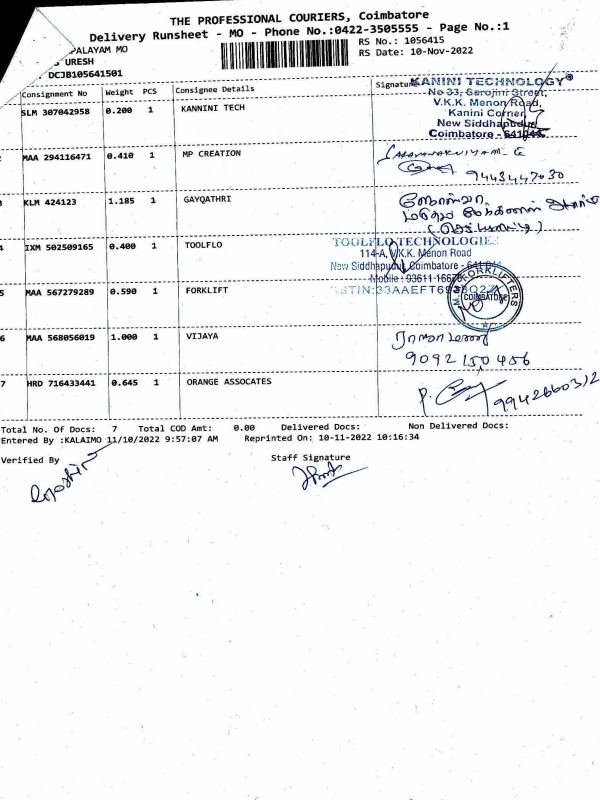 THE PROFESSIONAL COURIERS, Coimbatore
Delivery Runsheet - MO - Phone No.:0422-3505555 - Page No.:1
PALAYAM MO
RS No.: 1056415
URESH
RS Date: 10-Nov-2022
DCJB105641501
Consignment No Weight PCS Consignee Details Signature
SLM 307042958 0.200 1 KANNINI TECH
KANINI TECHNOLOGY
No 33, Sarojini Street,
V.K.K. Menon Road,
Kanini Corner,
New Siddhapudur
Coimbatore - 641044
2 MAA 294116471 0.410 1 MP CREATION
9443447030
3 KLM 424123 1.185 1 GAYQATHRI
4 IXM 502509165 0.400 1 TOOLFLO
TOOLFLO TECHNOLOGIES
114-A, V.K.K. Menon Road
New Siddhapudur, Coimbatore - 641 044
Mobile : 93611
5 MAA 567279289 0.590 1 FORKLIFT
FORKLIFTERS
COIMBATORE
6 MAA 568056019 1.000 1 VIJAYA
9092150456
7 HRD 716433441 0.645 1 ORANGE ASSOCATES
P.
9942660312
Total No. Of Docs: 7 Total COD Amt: 0.00 Delivered Docs: Non Delivered Docs:
Entered By :KALAIMO 11/10/2022 9:57:07 AM Reprinted On: 10-11-2022 10:16:34
Verified By Staff Signature